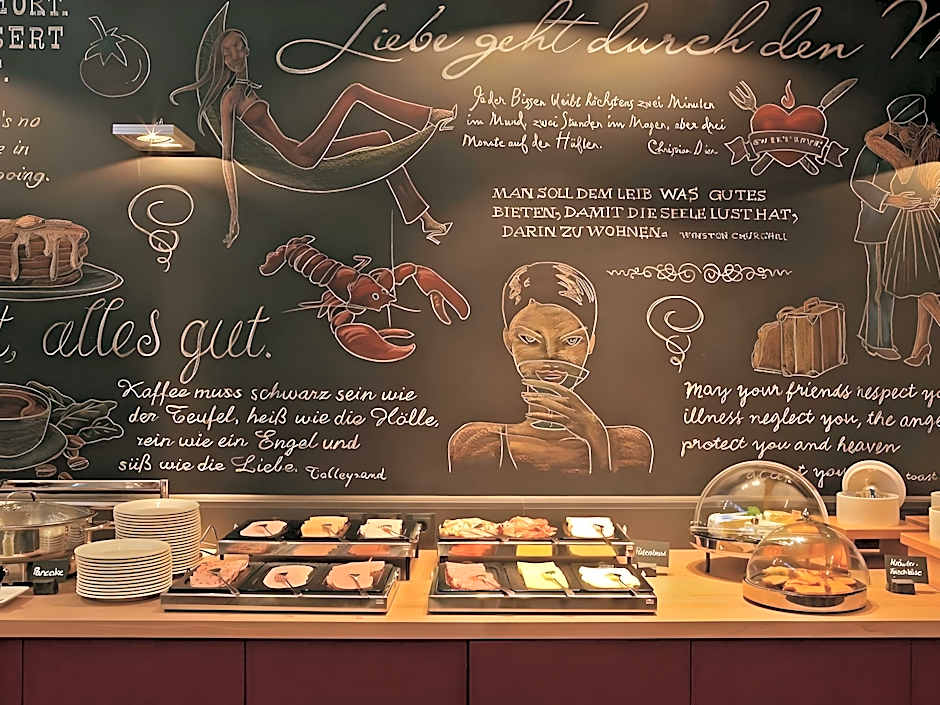 HURT.
SERT
Liebe geht durch den M
's no
e in
ping.
Jeder Bissen bleibt höchstens zwei Minuten
im Mund, zwei Stunden im Magen, aber drei
Monate auf den Hüften.
Christian Dior
MAN SOLL DEM LEIB WAS GUTES
BIETEN, DAMIT DIE SEELE LUST HAT,
DARIN ZU WOHNEN. WINSTON CHURCHILL
t, alles gut.
Kaffee muss schwarz sein wie
der Teufel, heiß wie die Hölle,
rein wie ein Engel und
süß wie die Liebe. Talleyrand
May your friends respect yo
illness neglect you, the ange
protect you and heaven
t you toast
Pancake